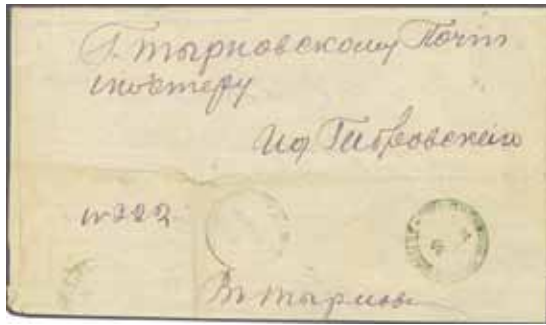 Г. Тырновскому Почт
мейстеру
Из Габровскаго
№ 222
Въ Тырновъ